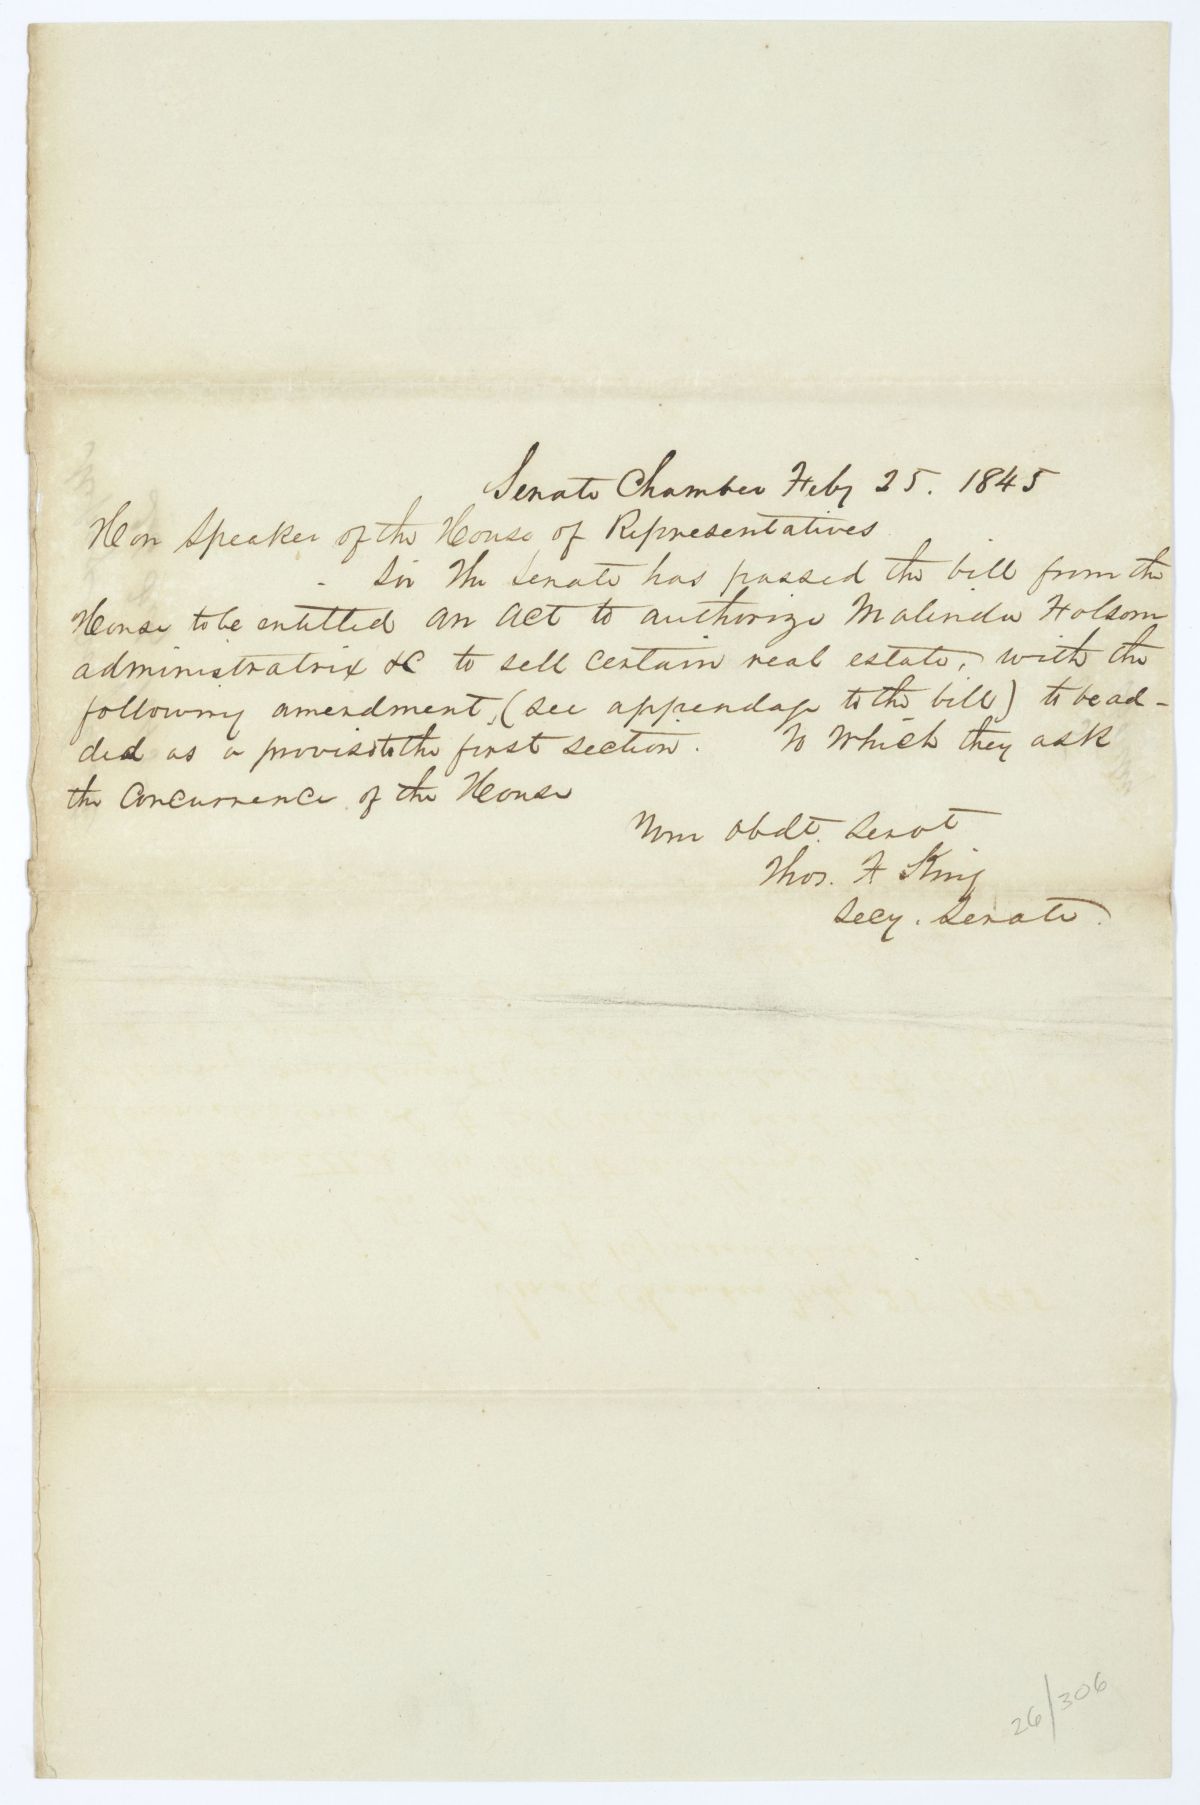 Senate Chamber Feby 25. 1845
Hon Speaker of the House of Representatives
Sir The Senate has passed the bill from the
House to be entitled an act to authorize Malinda Folsom
administratrix &C to sell certain real estate, with the
following amendment, (see appendage to the bill) to be ad-
ded as a proviso to the first section. To which they ask
the Concurrence of the House
Your obdt. Servt
Thos. F King
Secy. Senate.
26/306